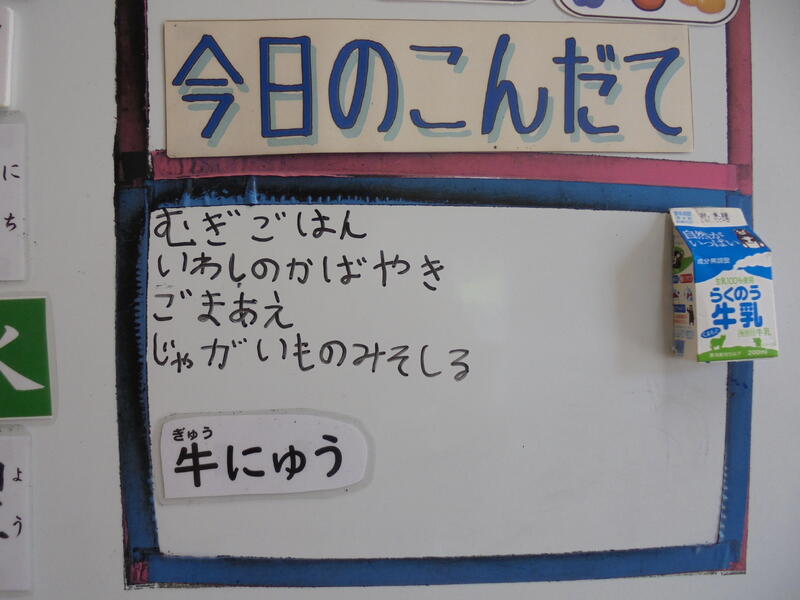 今日のこんだて
むぎごはん
いわしのかばやき
ごまあえ
じゃがいものみそしる
ぎゅう
牛にゅう
自然が
いっぱい
成分無調整
生乳100%使用
らくのう
牛乳
200ml
に
ち
水
よ
う